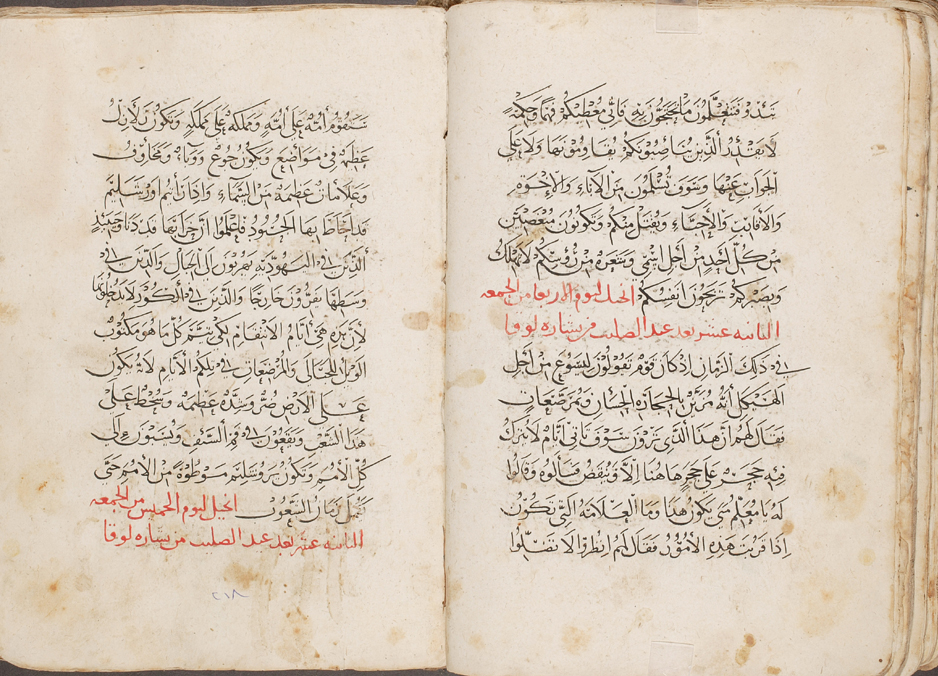 تبتدو فتتعلمون ما تحتجون به فاني معطيكم فهمًا وحكمةً
لا يقدر الذين يناصبونكم يقاومونها ولا على
الجواب عنها وسوف تسلمون من الآباء والاخوه
والاقارب والأحباء ويقتل منكم وتكونون مبغضين
من كل أحد من أجل اسمي وشعره من رؤسكم لا تهلك
وبصبركم تربحون أنفسكم انجيل اليوم الاربعا من الجمعه
الثانيه عشر بعد عيد الصليب من بشاره لوقا
في ذلك الزمان اذ كان قوم يقولون ليسوع من أجل
الهيكل أنه مزين بالحجارة الحسان ومرضعان
فقال لهم أن هذا الذي ترون سوف تاتي أيام لا يترك
فيه حجر على حجر هاهنا الا وينقض فسألوه وقالوا
له يا معلم متى يكون هذا وما العلامة التي تكون
اذا قربت هذه الأمور فقال لهم انظروا لا تضلوا
ستقوم أمة على أمة ومملكة على مملكة وتكون زلازل
عظمه في مواضع ويكون جوع ووباء ومخاوف
وعلامات عظمه من السماء واذا رأيتم اورشليم
قد احاط بها الجنود فاعلموا أن خرابها قد دنا وحينيذ
الذين في اليهودية يهربون الى الجبال والذين في
وسطها يفرون خارجًا والذين في الكور لا يدخلوها
لأن هذه هي أيام الانتقام لكي يتم كل ما هو مكتوب
الويل للحبالى والمرضعات في تلكم الأيام لأنه يكون
على الأرض ضر وشدة عظمه وسخط على
هذا الشعب ويقعون في فم السيف ويسبون الى
كل الأمم وتكون يروشليم موطوة من الأمم حتى
يكمل زمان الشعوب انجيل اليوم الخميس من الجمعه
الثانيه عشر بعد عيد الصليب من بشاره لوقا
٢١٨